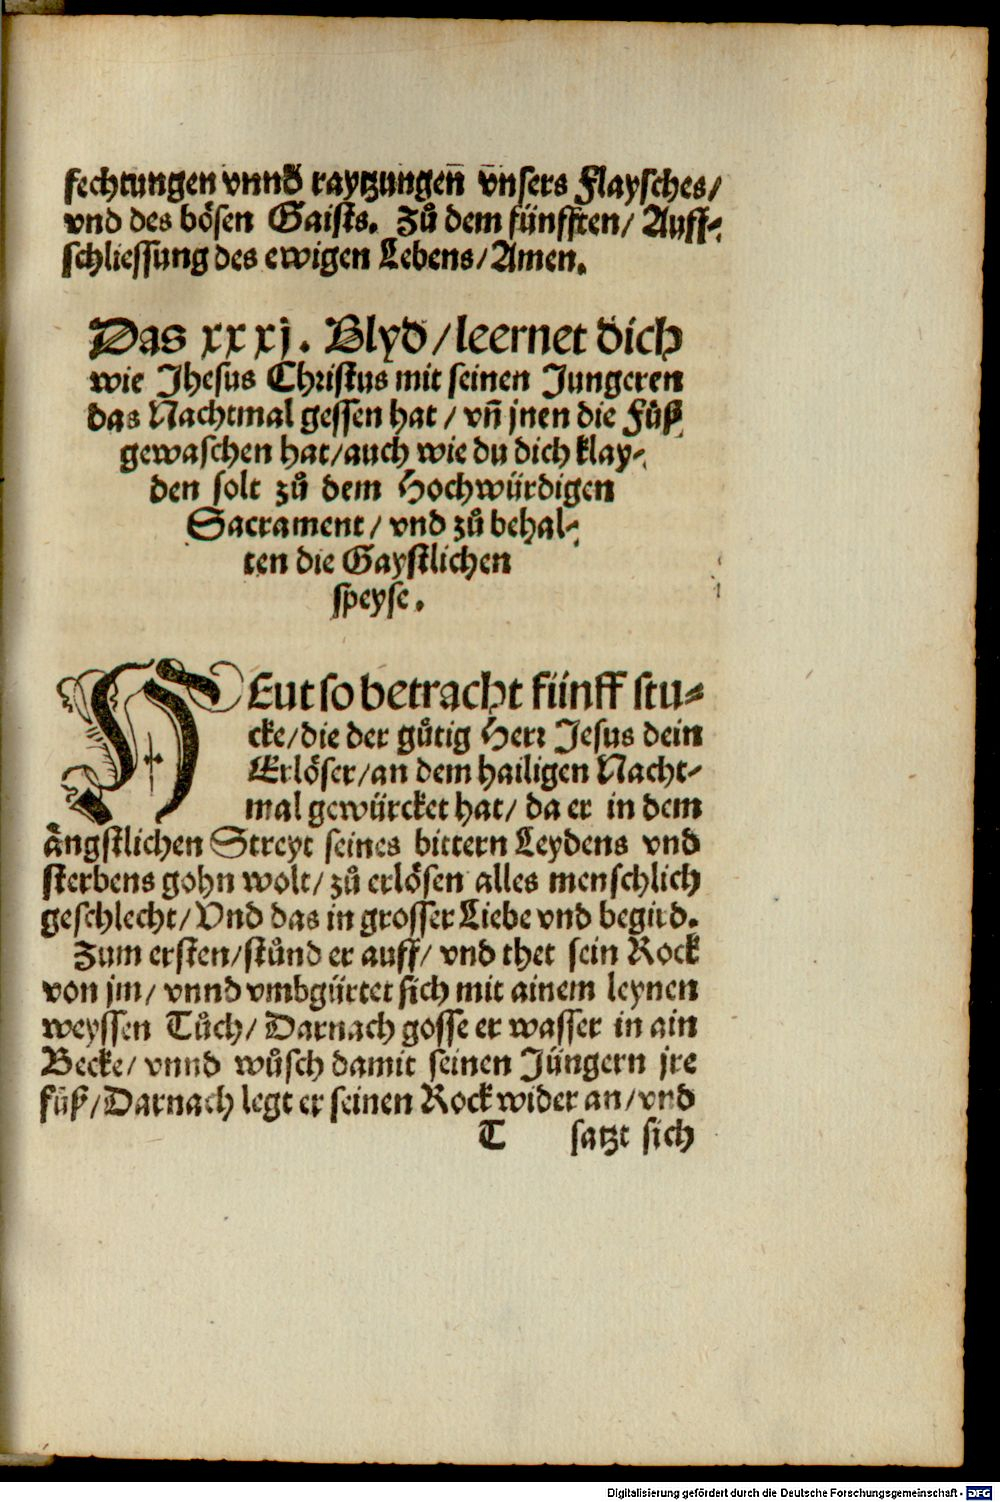 fechtungen vnnd raytzungen̄ v̄nsers Flaysches/
vnd des bösen Gaists. Zů dem fünfften/ Auff-
schliessung des ewigen Lebens/ Amen.
Das xxxj. Blyd/ leernet dich
wie Jhesus Christus mit seinen Jungeren
das Nachtmal gessen hat/ vn̄ jnen die Fůß
gewaschen hat/ auch wie du dich klay-
den solt zů dem Hochwürdigen
Sacrament/ vnd zů behal-
ten die Gaystlichen
speyse.
HEut so betracht fünff stu-
cke/ die der gůtig Herr Jesus dein
Erlöser/ an dem hailigen Nacht-
mal gewürcket hat/ da er in dem
ångstlichen Streyt seines bittern Leydens vnd
sterbens gohn wolt/ zů erlösen alles menschlich
geschlecht/ Vnd das in grosser Liebe vnd begird.
Zum ersten/ stůnd er auff/ vnd thet sein Rock
von jm/ vnnd vmbgürtet sich mit ainem leynen
weyssen Tůch/ Darnach gosse er wasser in ain
Becke/ vnnd wůsch damit seinen Jüngern jre
füß/ Darnach legt er seinen Rock wider an/ vnd
T satzt sich
Digitalisierung gefördert durch die Deutsche Forschungsgemeinschaft - DFG